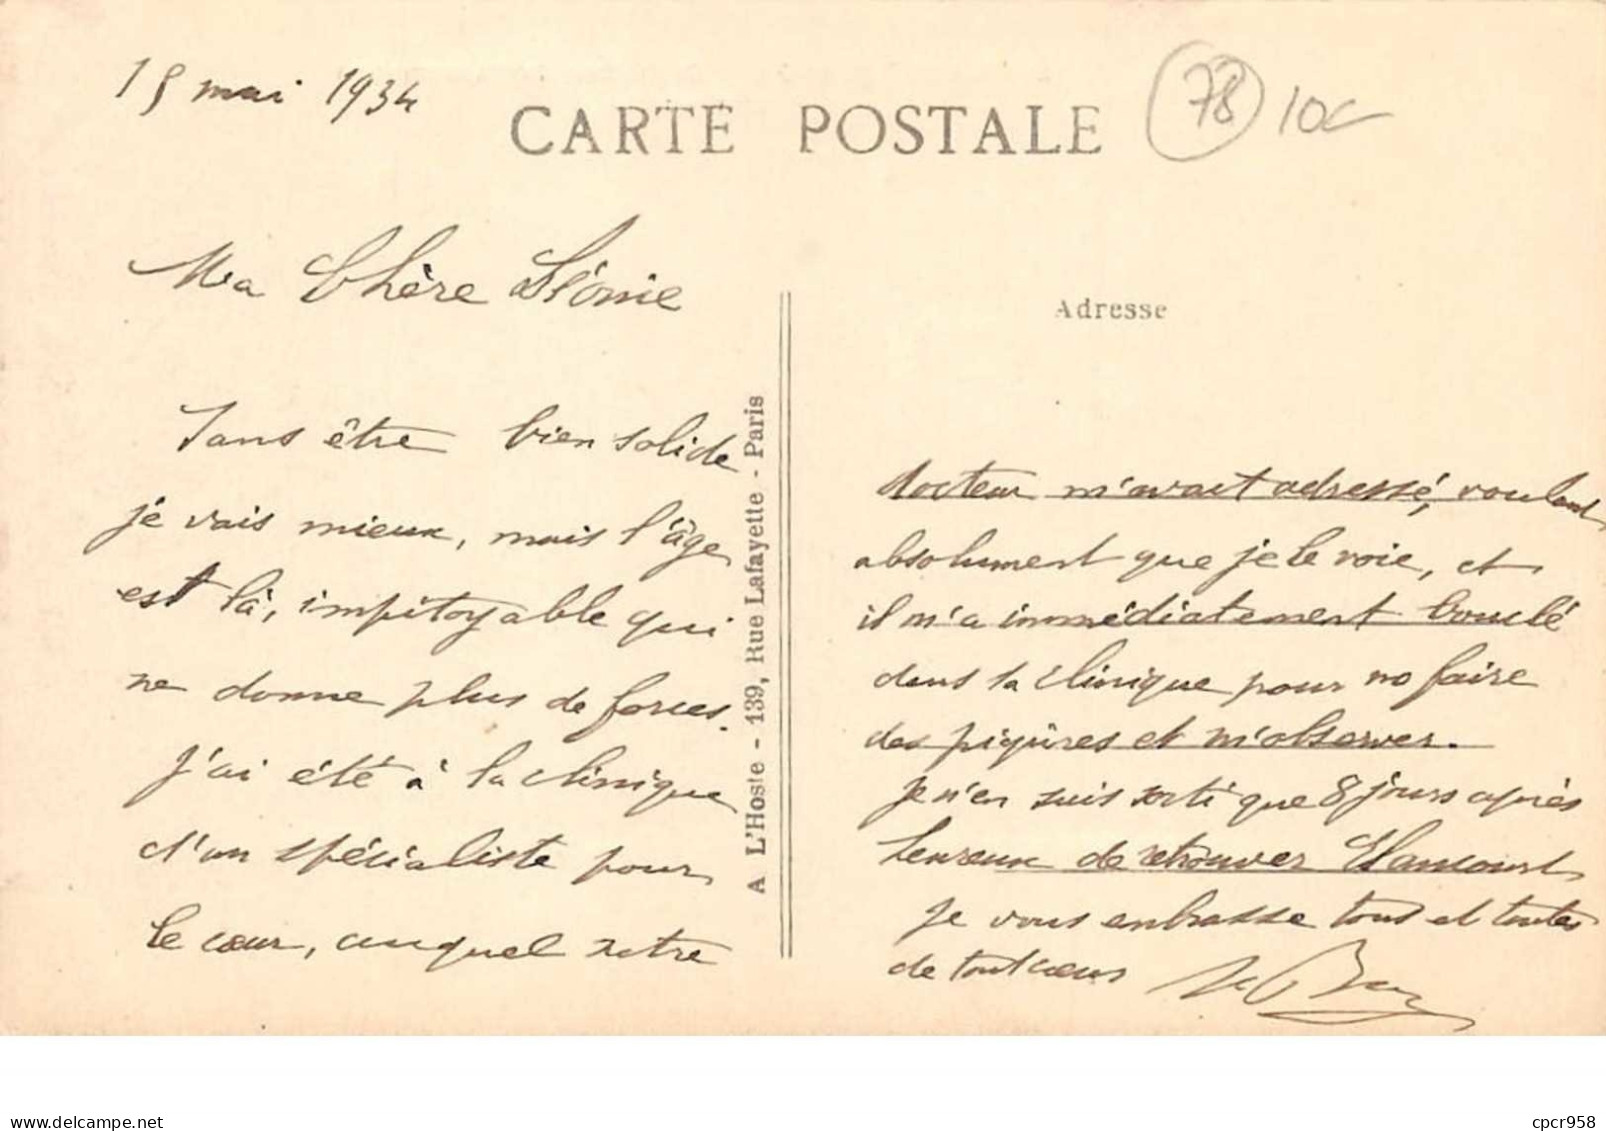 15 mai 1934
CARTE POSTALE
78 10c
Ma Chère Léonie
Adresse
Sans être bien solide
je vais mieux, mais l'âge
est là, impitoyable qui
ne donne plus de forces.
J'ai été à la clinique
d'un spécialiste pour
le cœur, auquel notre
A L'Hoste - 139, Rue Lafayette - Paris
docteur m'avait adressé, voulant
absolument que je le voie, et
il m'a immédiatement bouclé
dans sa clinique pour me faire
des piqûres et m'observer.
Je n'en suis sorti que 8 jours après
heureux de retrouver Elancourt
Je vous embrasse tous et toutes
de tout cœur
cpcr958